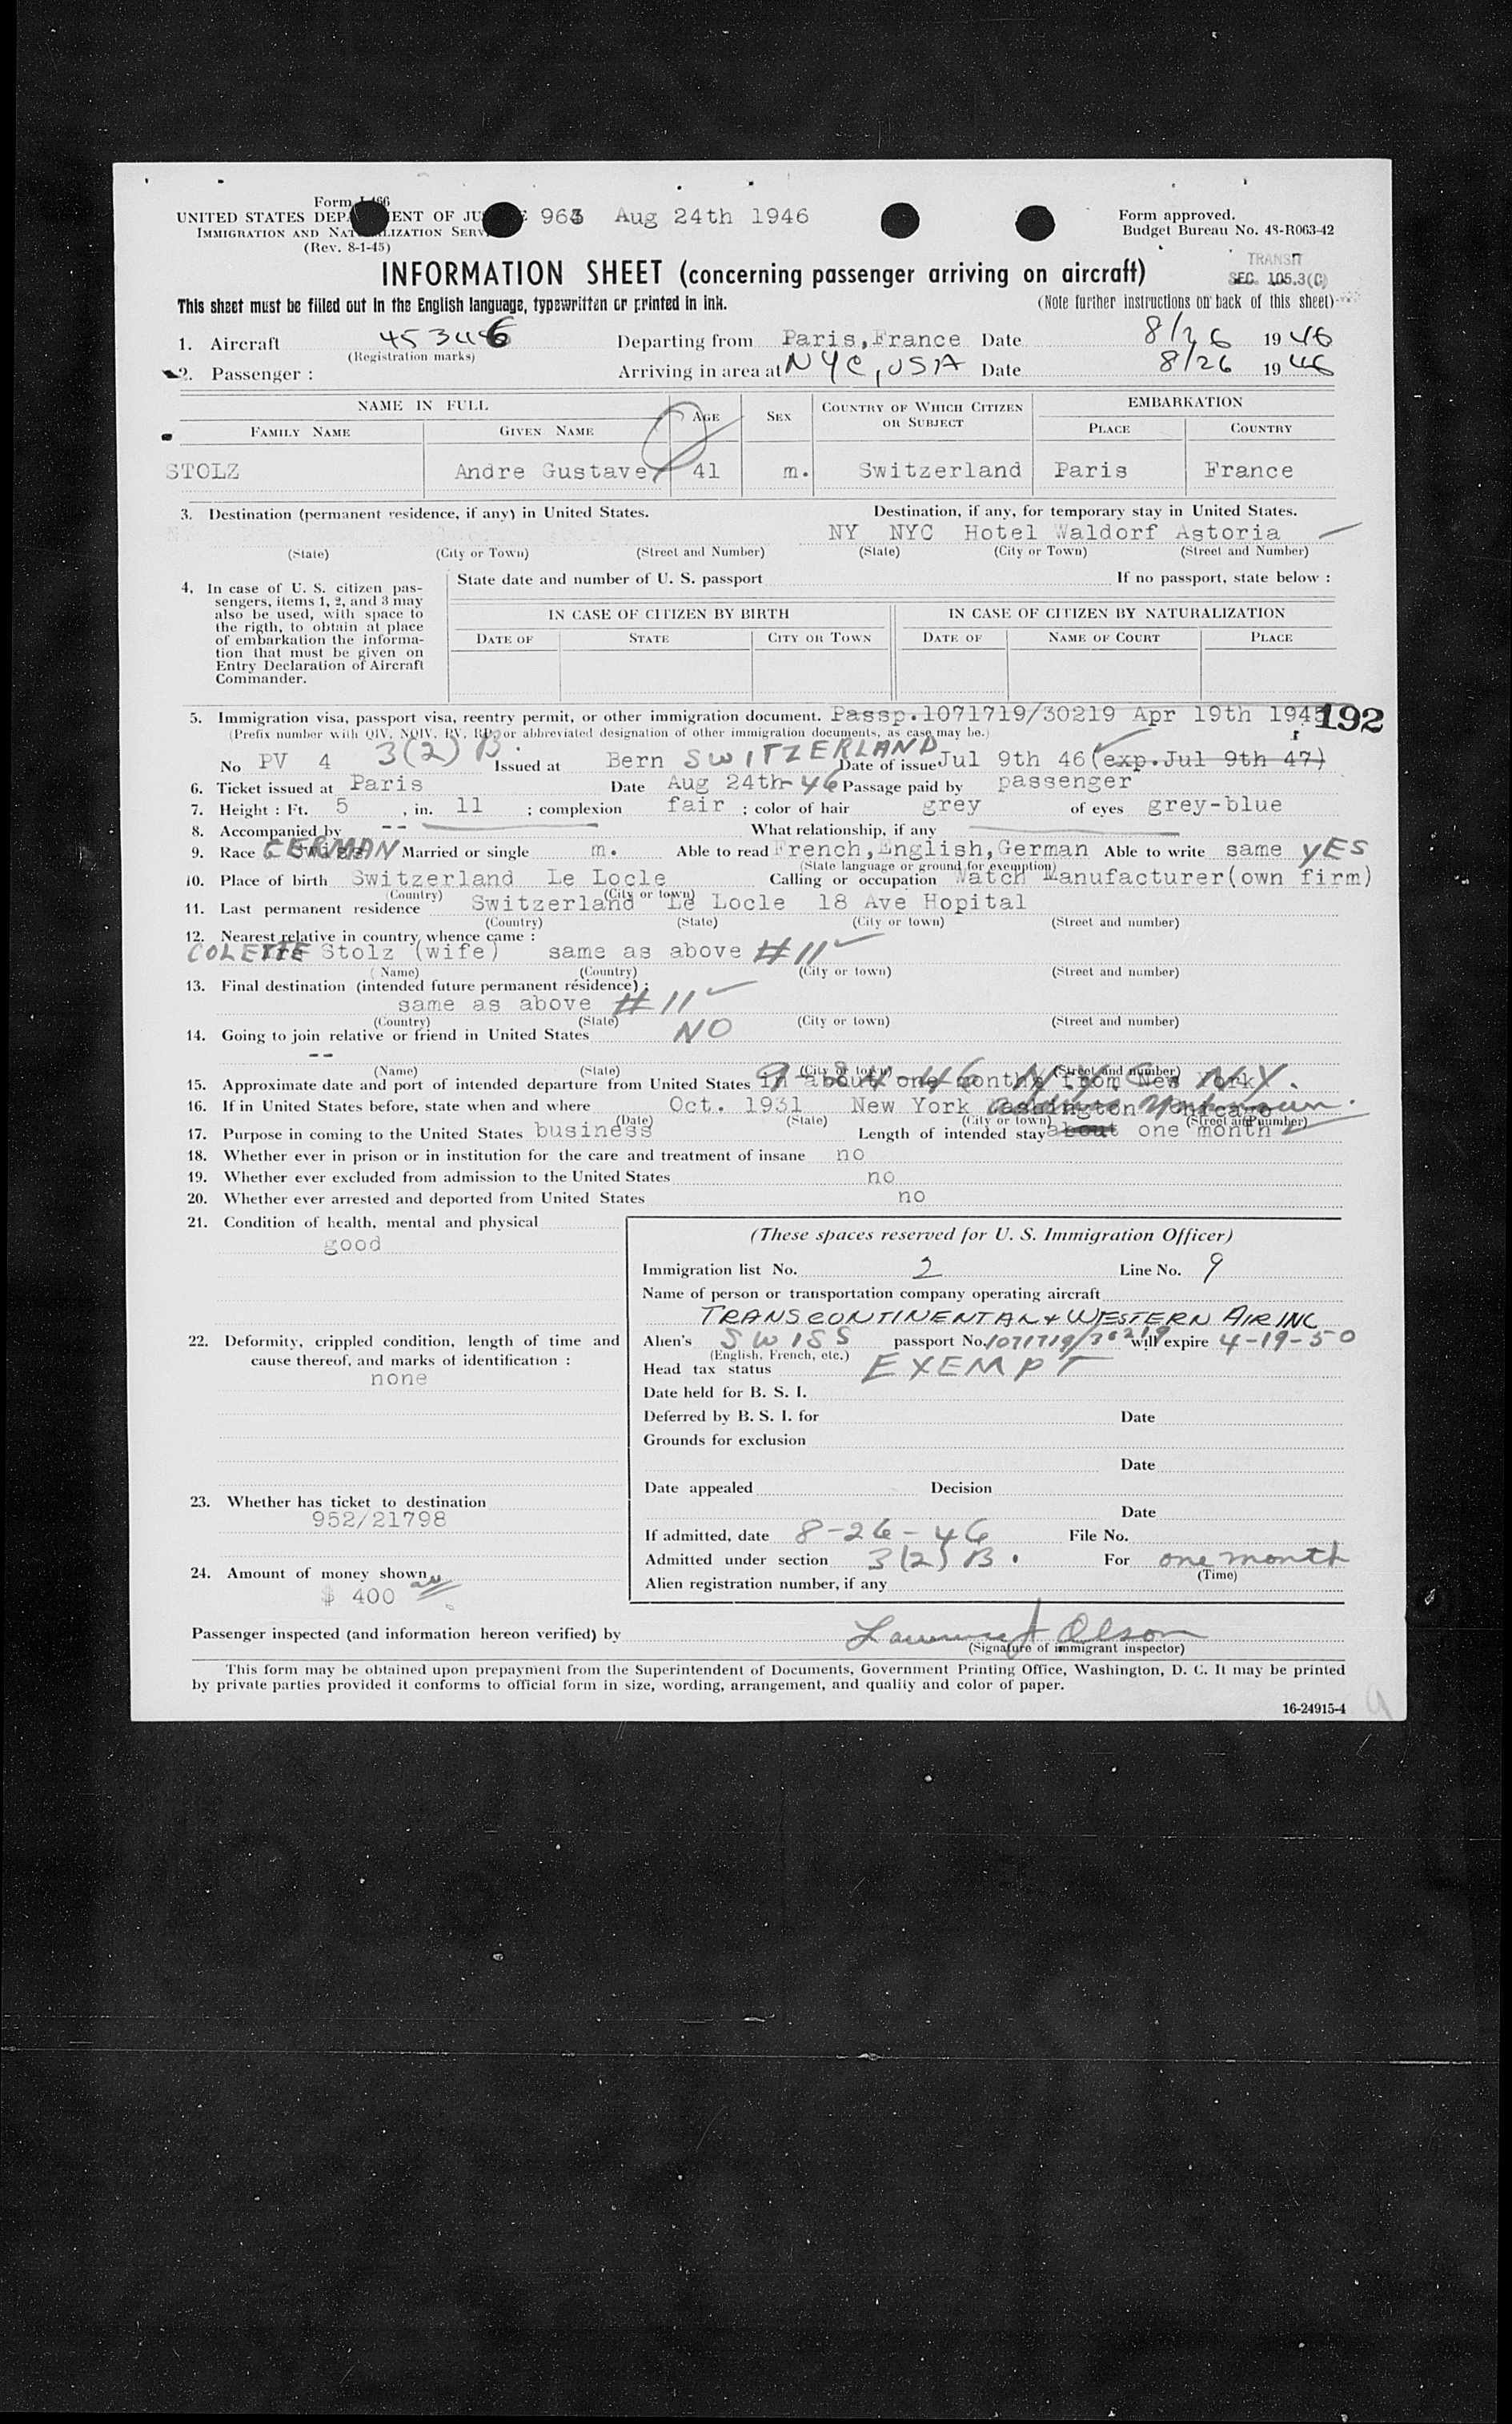 Form I-466
UNITED STATES DEPARTMENT OF JUSTICE 963 Aug 24th 1946
IMMIGRATION AND NATURALIZATION SERVICE
(Rev. 8-1-45)
Form approved.
Budget Bureau No. 43-R063-42
TRANSIT
SEC. 105.3(C)
INFORMATION SHEET (concerning passenger arriving on aircraft)
This sheet must be filled out in the English language, typewritten or printed in ink. (Note further instructions on back of this sheet)
1. Aircraft 45346 Departing from Paris, France Date 8/26 1946
(Registration marks)
2. Passenger : Arriving in area at NYC, USA Date 8/26 1946
NAME IN FULL AGE SEX COUNTRY OF WHICH CITIZEN OR SUBJECT EMBARKATION
FAMILY NAME GIVEN NAME PLACE COUNTRY
STOLZ Andre Gustave 41 m. Switzerland Paris France
3. Destination (permanent residence, if any) in United States. Destination, if any, for temporary stay in United States.
NY NYC Hotel Waldorf Astoria
(State) (City or Town) (Street and Number) (State) (City or Town) (Street and Number)
4. In case of U. S. citizen pas-
sengers, items 1, 2, and 3 may
also be used, with space to
the rigth, to obtain at place
of embarkation the informa-
tion that must be given on
Entry Declaration of Aircraft
Commander.
State date and number of U. S. passport If no passport, state below :
IN CASE OF CITIZEN BY BIRTH IN CASE OF CITIZEN BY NATURALIZATION
DATE OF STATE CITY OR TOWN DATE OF NAME OF COURT PLACE
5. Immigration visa, passport visa, reentry permit, or other immigration document. Passp.1071719/30219 Apr 19th 1945 192
(Prefix number with QIV, NQIV, PV, RP, or abbreviated designation of other immigration documents, as case may be.)
No PV 4 3(2) B. Issued at Bern SWITZERLAND Date of issue Jul 9th 46 (exp.Jul 9th 47)
6. Ticket issued at Paris Date Aug 24th-46 Passage paid by passenger
7. Height : Ft. 5 , in. 11 ; complexion fair ; color of hair grey of eyes grey-blue
8. Accompanied by -- What relationship, if any
9. Race Swiss GERMAN Married or single m. Able to read French, English, German Able to write same YES
(State language or ground for exemption)
10. Place of birth Switzerland Le Locle Calling or occupation Watch Manufacturer (own firm)
(Country) (City or town)
11. Last permanent residence Switzerland Le Locle 18 Ave Hopital
(Country) (State) (City or town) (Street and number)
12. Nearest relative in country whence came :
COLETTE Stolz (wife) same as above #11
(Name) (Country) (City or town) (Street and number)
13. Final destination (intended future permanent residence) :
same as above #11
(Country) (State) (City or town) (Street and number)
14. Going to join relative or friend in United States NO
--
(Name) (State) (City or town) (Street and number)
15. Approximate date and port of intended departure from United States in about one months from New York 9-24-46 N.Y.C. N.Y.
16. If in United States before, state when and where Oct. 1931 New York Washington Chicago address unknown.
(Date) (State) (City or town) (Street and number)
17. Purpose in coming to the United States business Length of intended stay about one month
18. Whether ever in prison or in institution for the care and treatment of insane no
19. Whether ever excluded from admission to the United States no
20. Whether ever arrested and deported from United States no
21. Condition of health, mental and physical
good
22. Deformity, crippled condition, length of time and
cause thereof, and marks of identification :
none
23. Whether has ticket to destination
952/21798
24. Amount of money shown
$ 400
(These spaces reserved for U. S. Immigration Officer)
Immigration list No. 2 Line No. 9
Name of person or transportation company operating aircraft
TRANSCONTINENTAL & WESTERN AIR INC
Alien's SWISS passport No. 1071719/30219 will expire 4-19-50
(English, French, etc.)
Head tax status EXEMPT
Date held for B. S. I.
Deferred by B. S. I. for Date
Grounds for exclusion
Date
Date appealed Decision
Date
If admitted, date 8-26-46 File No.
Admitted under section 3(2) B. For one month
(Time)
Alien registration number, if any
Passenger inspected (and information hereon verified) by Lawrence A Olson
(Signature of immigrant inspector)
This form may be obtained upon prepayment from the Superintendent of Documents, Government Printing Office, Washington, D. C. It may be printed
by private parties provided it conforms to official form in size, wording, arrangement, and quality and color of paper.
16-24915-4